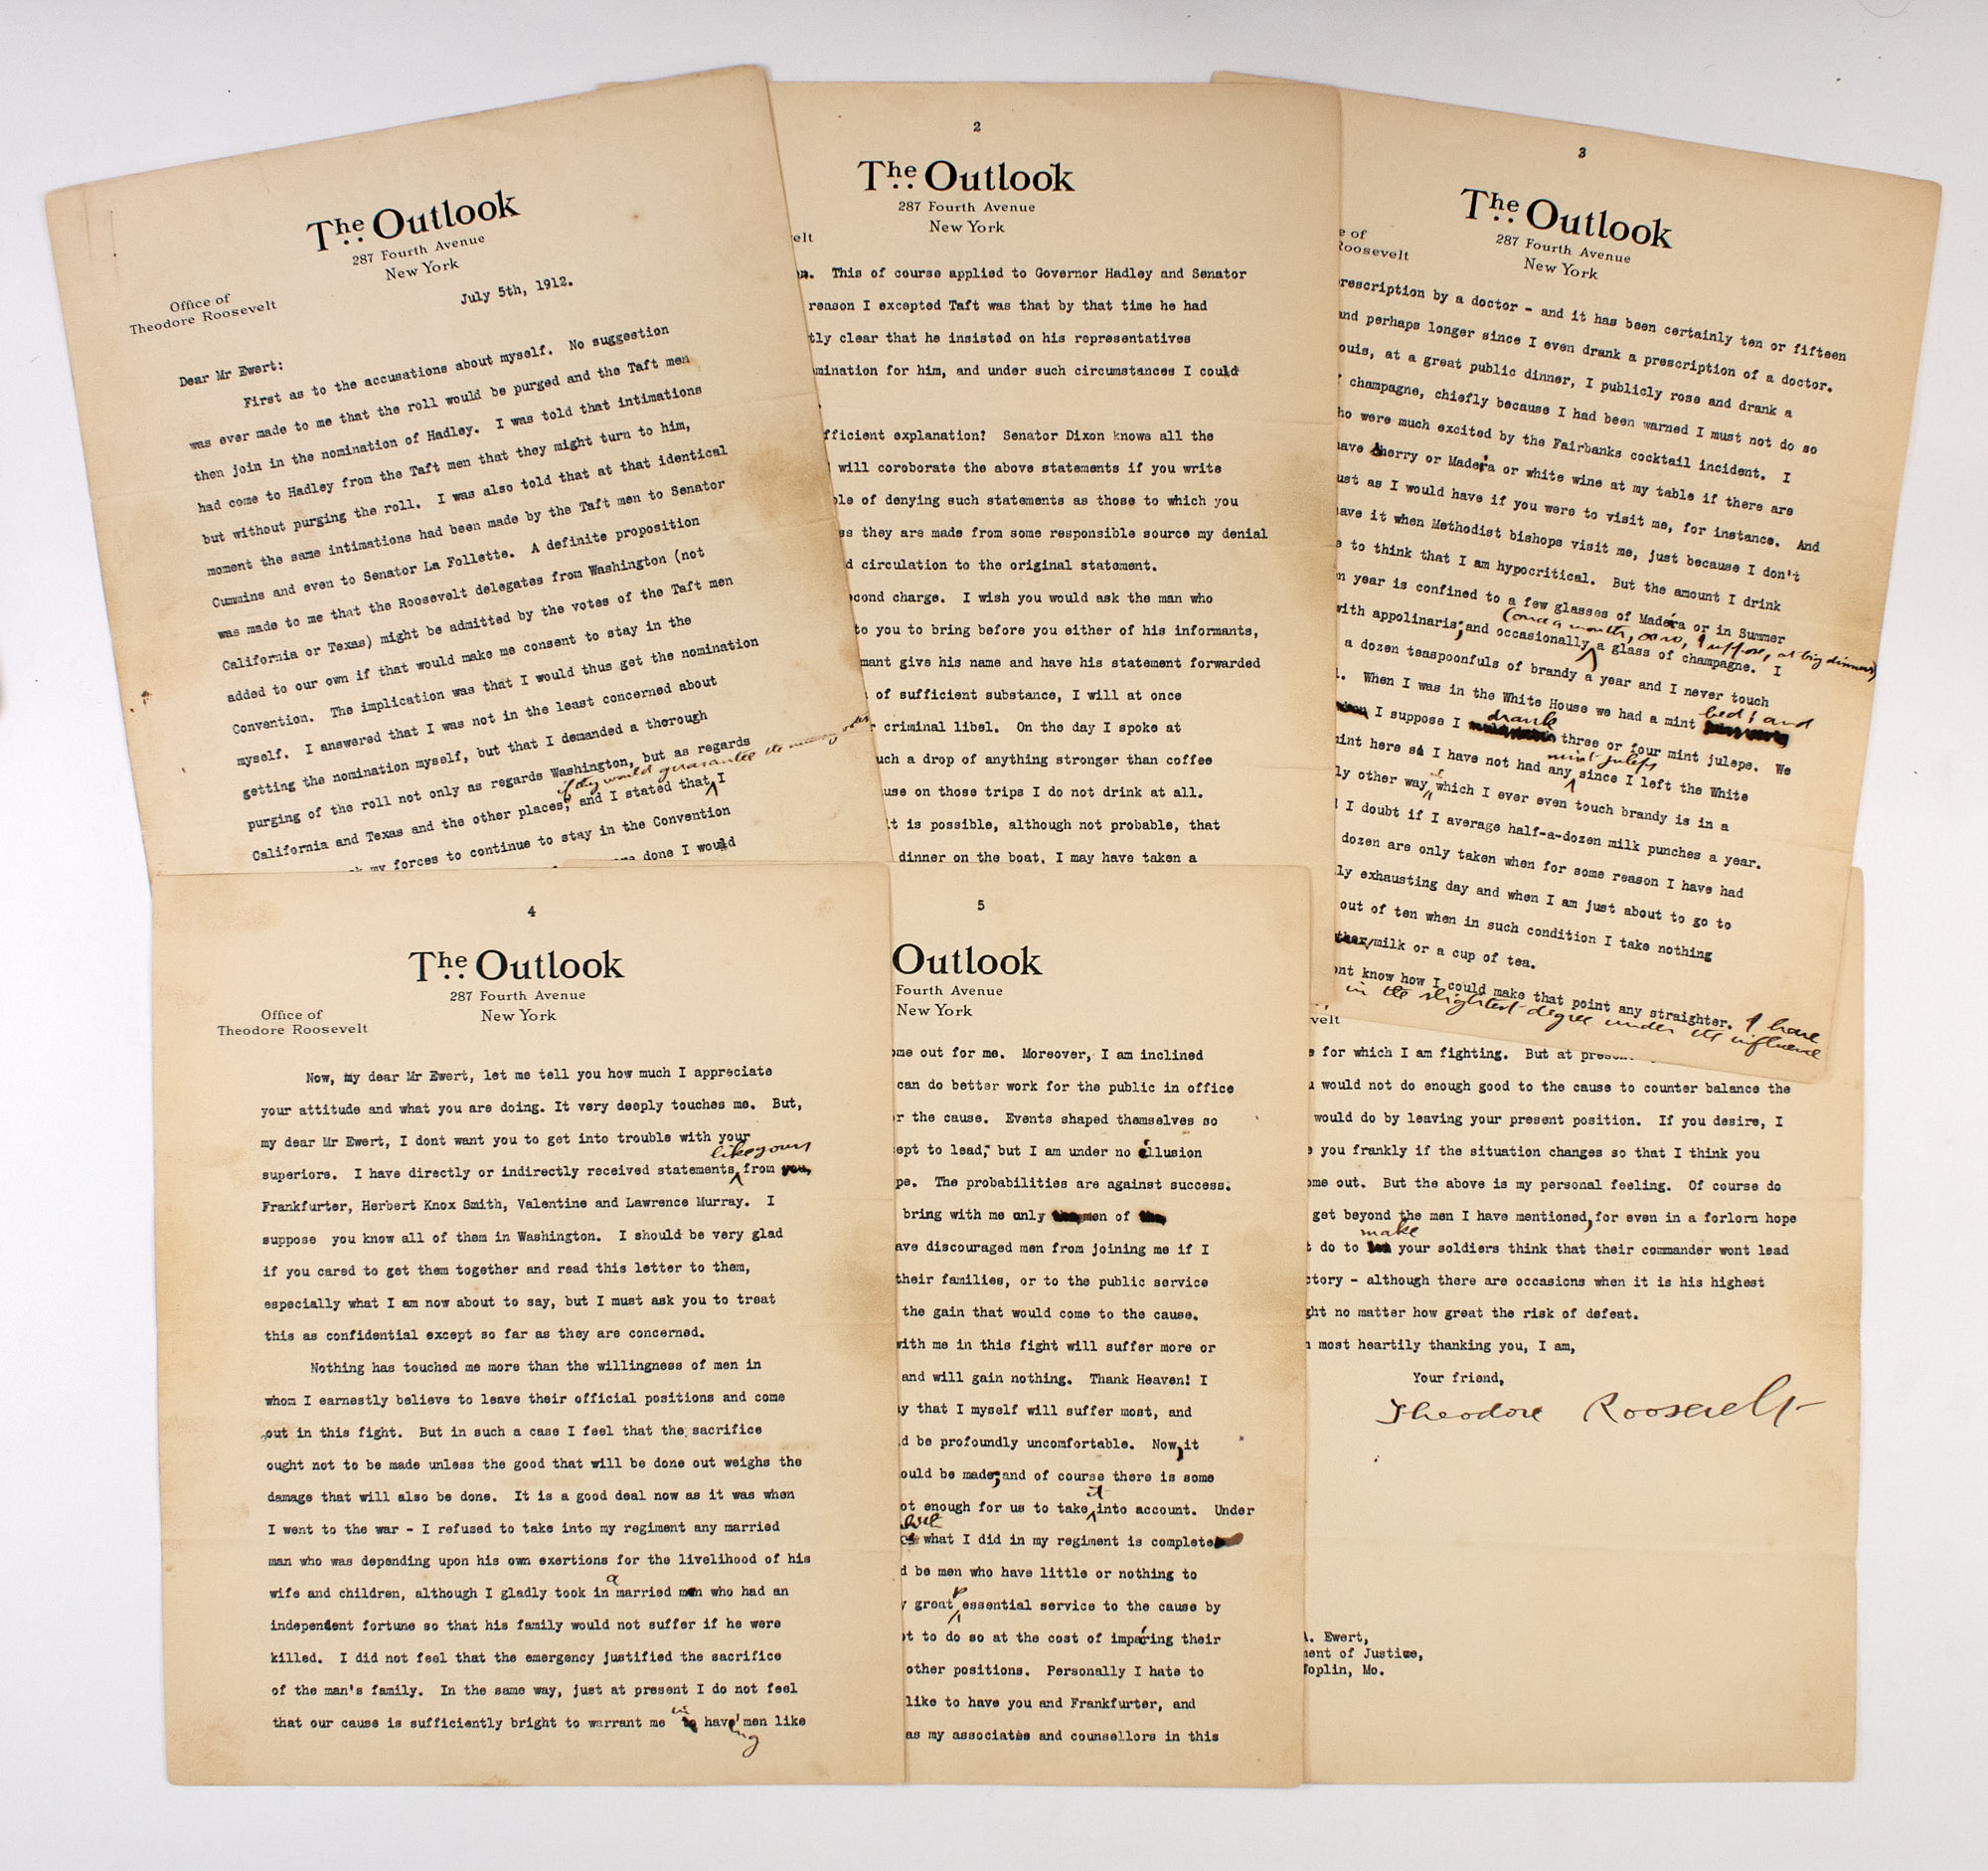 The Outlook
287 Fourth Avenue
New York
Office of
Theodore Roosevelt
July 5th, 1912.
Dear Mr Ewert:
First as to the accusations about myself. No suggestion
was ever made to me that the roll would be purged and the Taft men
then join in the nomination of Hadley. I was told that intimations
had come to Hadley from the Taft men that they might turn to him,
but without purging the roll. I was also told that at that identical
moment the same intimations had been made by the Taft men to Senator
Cummins and even to Senator La Follette. A definite proposition
was made to me that the Roosevelt delegates from Washington (not
California or Texas) might be admitted by the votes of the Taft men
added to our own if that would make me consent to stay in the
Convention. The implication was that I would thus get the nomination
myself. I answered that I was not in the least concerned about
getting the nomination myself, but that I demanded a thorough
purging of the roll not only as regards Washington, but as regards
if they would guarantee the
California and Texas and the other places; and I stated that I
my forces to continue to stay in the Convention
done I would
2
The Outlook
287 Fourth Avenue
New York
velt
This of course applied to Governor Hadley and Senator
reason I excepted Taft was that by that time he had
tly clear that he insisted on his representatives
mination for him, and under such circumstances I could
fficient explanation? Senator Dixon knows all the
will coroborate the above statements if you write
ble of denying such statements as those to which you
ss they are made from some responsible source my denial
d circulation to the original statement.
cond charge. I wish you would ask the man who
to you to bring before you either of his informants,
mant give his name and have his statement forwarded
of sufficient substance, I will at once
r criminal libel. On the day I spoke at
uch a drop of anything stronger than coffee
use on those trips I do not drink at all.
it is possible, although not probable, that
dinner on the boat. I may have taken a
3
The Outlook
287 Fourth Avenue
New York
e of
Roosevelt
rescription by a doctor - and it has been certainly ten or fifteen
and perhaps longer since I even drank a prescription of a doctor.
ouis, at a great public dinner, I publicly rose and drank a
champagne, chiefly because I had been warned I must not do so
ho were much excited by the Fairbanks cocktail incident. I
have sherry or Madeira or white wine at my table if there are
ust as I would have if you were to visit me, for instance. And
have it when Methodist bishops visit me, just because I don't
e to think that I am hypocritical. But the amount I drink
n year is confined to a few glasses of Madeira or in Summer
(once a month, or so, I suppose, at big dinners)
with appolinaris; and occasionally a glass of champagne. I
a dozen teaspoonfuls of brandy a year and I never touch
. When I was in the White House we had a mint bed; and
drank
I suppose I three or four mint juleps. We
mint juleps
mint here so I have not had any since I left the White
ly other way, which I ever even touch brandy is in a
I doubt if I average half-a-dozen milk punches a year.
dozen are only taken when for some reason I have had
ly exhausting day and when I am just about to go to
out of ten when in such condition I take nothing
milk or a cup of tea.
ont know how I could make that point any straighter. I have
in the slightest degree under the influence
4
The Outlook
287 Fourth Avenue
New York
Office of
Theodore Roosevelt
Now, my dear Mr Ewert, let me tell you how much I appreciate
your attitude and what you are doing. It very deeply touches me. But,
my dear Mr Ewert, I dont want you to get into trouble with your
like yours
superiors. I have directly or indirectly received statements from you,
Frankfurter, Herbert Knox Smith, Valentine and Lawrence Murray. I
suppose you know all of them in Washington. I should be very glad
if you cared to get them together and read this letter to them,
especially what I am now about to say, but I must ask you to treat
this as confidential except so far as they are concerned.
Nothing has touched me more than the willingness of men in
whom I earnestly believe to leave their official positions and come
out in this fight. But in such a case I feel that the sacrifice
ought not to be made unless the good that will be done out weighs the
damage that will also be done. It is a good deal now as it was when
I went to the war - I refused to take into my regiment any married
man who was depending upon his own exertions for the livelihood of his
wife and children, although I gladly took in a married man who had an
independent fortune so that his family would not suffer if he were
killed. I did not feel that the emergency justified the sacrifice
of the man's family. In the same way, just at present I do not feel
that our cause is sufficiently bright to warrant me in having men like
5
Outlook
Fourth Avenue
New York
ome out for me. Moreover, I am inclined
can do better work for the public in office
r the cause. Events shaped themselves so
ept to lead; but I am under no illusion
pe. The probabilities are against success.
bring with me only men of
ave discouraged men from joining me if I
their families, or to the public service
the gain that would come to the cause.
with me in this fight will suffer more or
and will gain nothing. Thank Heaven! I
ay that I myself will suffer most, and
d be profoundly uncomfortable. Now, it
ould be made; and of course there is some
it
ot enough for us to take into account. Under
what I did in my regiment is complete
d be men who have little or nothing to
y great essential service to the cause by
ot to do so at the cost of impairing their
other positions. Personally I hate to
like to have you and Frankfurter, and
as my associates and counsellors in this
velt
e for which I am fighting. But at
u would not do enough good to the cause to counter balance the
would do by leaving your present position. If you desire, I
e you frankly if the situation changes so that I think you
ome out. But the above is my personal feeling. Of course do
get beyond the men I have mentioned, for even in a forlorn hope
make
t do to your soldiers think that their commander wont lead
ctory - although there are occasions when it is his highest
ght no matter how great the risk of defeat.
most heartily thanking you, I am,
Your friend,
Theodore Roosevelt
A. Ewert,
ment of Justice,
Joplin, Mo.